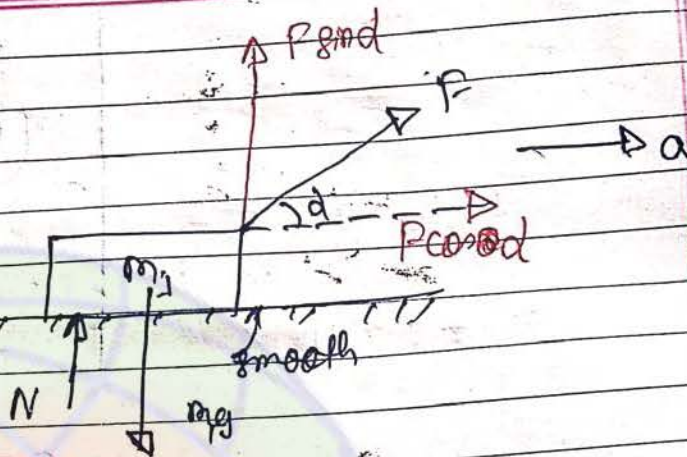 F sin α
F
a
α
F cos α
m
smooth
N
mg